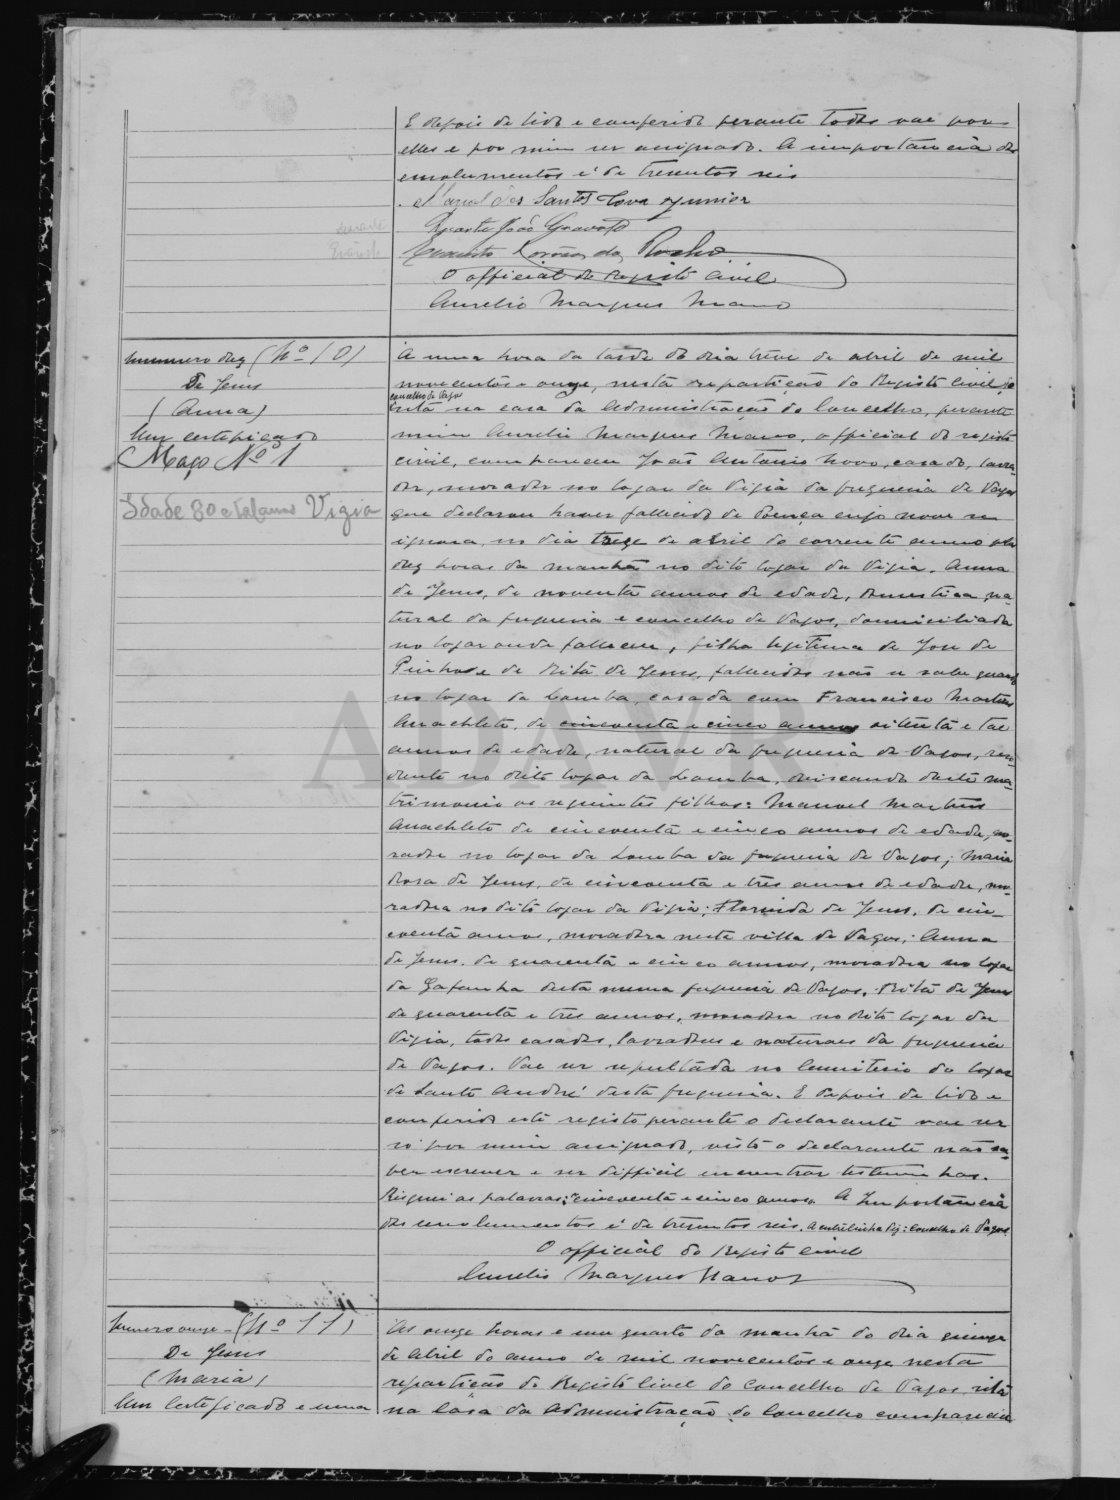 E depois de lido e conferido perante todos vae por
elles e por mim ser assignado. A importancia dos
emolumentos é de trezentos reis
Manoel dos Santos Cova Junior
Duarte João Gravato
da Rocha
O official do Registo Civil
Aurelio Marques Mano
Nummero dez (Nº 10)
De Jesus
(Anna)
Um certificado
Maço Nº 1
Idade 80 e tal annos Vigia
A uma hora da tarde do dia treze de abril de mil
novecentos e onze, nesta repartição do Registo Civil,
concelho de Vagos
sita na casa da Administração do Concelho, perante
mim Aurelio Marques Mano, official do registo
civil, compareceu João Antonio Novo, casado, lavra-
dor, morador no logar da Vigia da freguesia de Vagos
que declarou haver fallecido de doença cujo nome se
ignora, no dia treze de abril do corrente anno pelas
dez horas da manhã no dito logar da Vigia, Anna
de Jesus, de noventa annos de edade, domestica, na-
tural da freguesia e concelho de Vagos, domiciliada
no logar onde falleceu, filha legitima de José de
Pinho e de Rita de Jesus, fallecidos não se sabe quando
no logar da Lomba, casada com Francisco Martins
Anachleto, de cincoenta e cinco annos oitenta e tal
annos de edade, natural da freguesia de Vagos, resi-
dente no dito logar da Lomba, deixando deste ma-
trimonio os seguintes filhos: Manoel Martins
Anachleto de cincoenta e cinco annos de edade, mo-
rador no logar da Lomba da freguesia de Vagos; Maria
Rosa de Jesus, de cincoenta e tres annos de edade, mo-
radora no dito logar da Vigia; Florinda de Jesus, de cin-
coenta annos, moradora nesta villa de Vagos; Anna
de Jesus, de quarenta e cinco annos, moradora no logar
da Gafanha desta mesma freguesia de Vagos, Rita de Jesus
de quarenta e tres annos, moradora no dito logar da
Vigia, todos casados, lavradores e naturaes da freguesia
de Vagos. Vae ser sepultada no Cemiterio do logar
de Santo André desta freguesia. E depois de lido e
conferido este registo perante o declarante vae ser
só por mim assignado, visto o declarante não sa-
ber escrever e ser difficil encontrar testemunhas.
Risquei as palavras: "cincoenta e cinco annos. A Importancia
dos emolumentos é de trezentos reis. A entrelinha diz: concelho de Vagos
O official do Registo Civil
Aurelio Marques Mano
Numero onze - (Nº 11)
De Jesus
(Maria)
Um Certificado e uma
As onze horas e um quarto da manhã do dia quinze
de Abril do anno de mil novecentos e onze nesta
repartição do Registo Civil do Concelho de Vagos, sita
na Casa da Administração do Concelho compareceu
ADAVR